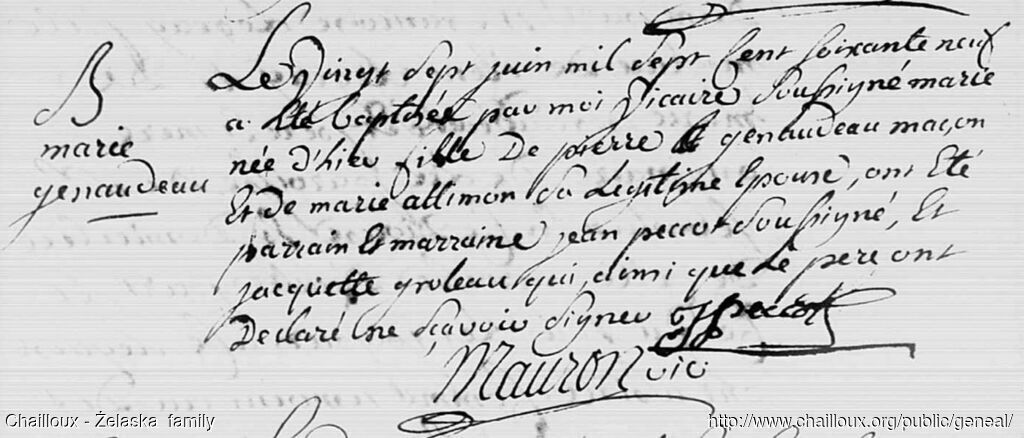 B
marie
genaudeau
Le Vingt Sept juin mil Sept Cent Soixante neuf
a Eté baptiséé par moi Vicaire Soussigné marie
née d'hier fille De pierre genaudeau maçon
Et De marie allimon Sa Legitime Epouse, ont Eté
parrain Et marraine jean peccot Soussigné, Et
jacquette groleau qui, aimi que Le pere, ont
Declaré ne Sçavoir Signer JPeccot
Mauron vic.
Chailloux - Żelaska family
http://www.chailloux.org/public/geneal/